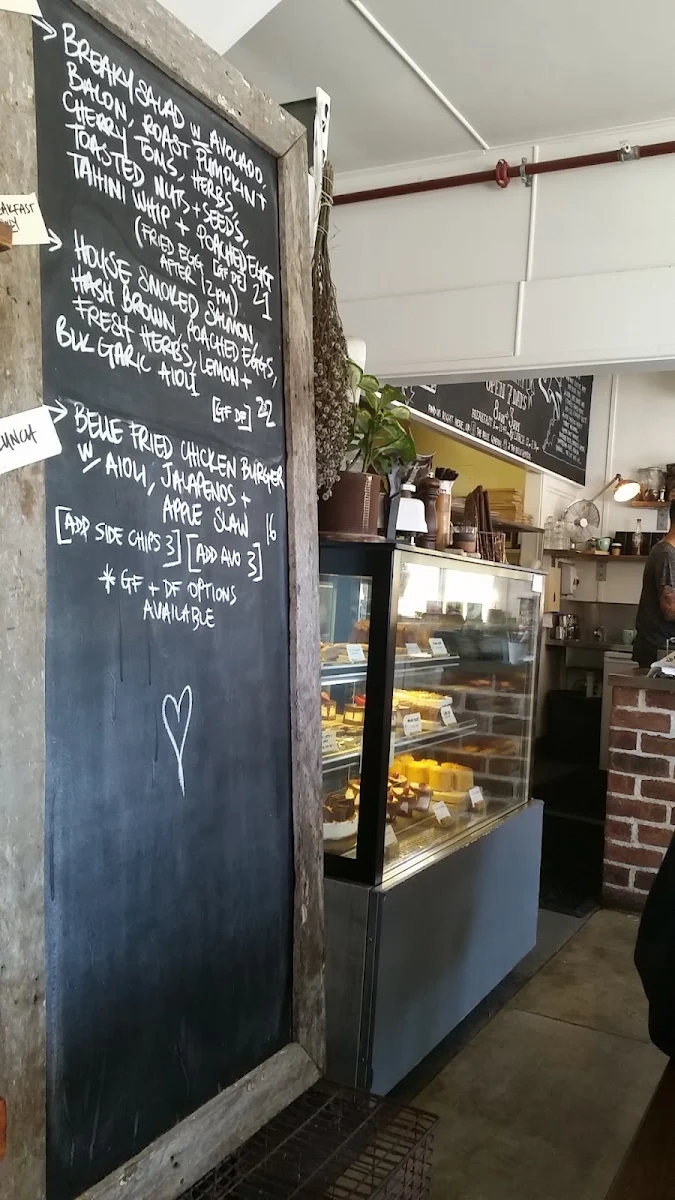 BREAKY SALAD w AVOCADO,
BACON, ROAST PUMPKIN +
CHERRY TOMS, HERBS,
TOASTED NUTS + SEEDS,
TAHINI WHIP + POACHED EGG
(FRIED EGG [GF DF]
AFTER 12PM) 21
HOUSE SMOKED SALMON,
HASH BROWN, POACHED EGGS,
FRESH HERBS, LEMON +
BLK GARLIC AIOLI
[GF DF] 22
LUNCH
BELLE FRIED CHICKEN BURGER
w/ AIOLI, JALAPENOS +
APPLE SLAW 16
[ADD SIDE CHIPS 3] [ADD AVO 3]
* GF + DF OPTIONS
AVAILABLE
OPEN 7 DAYS